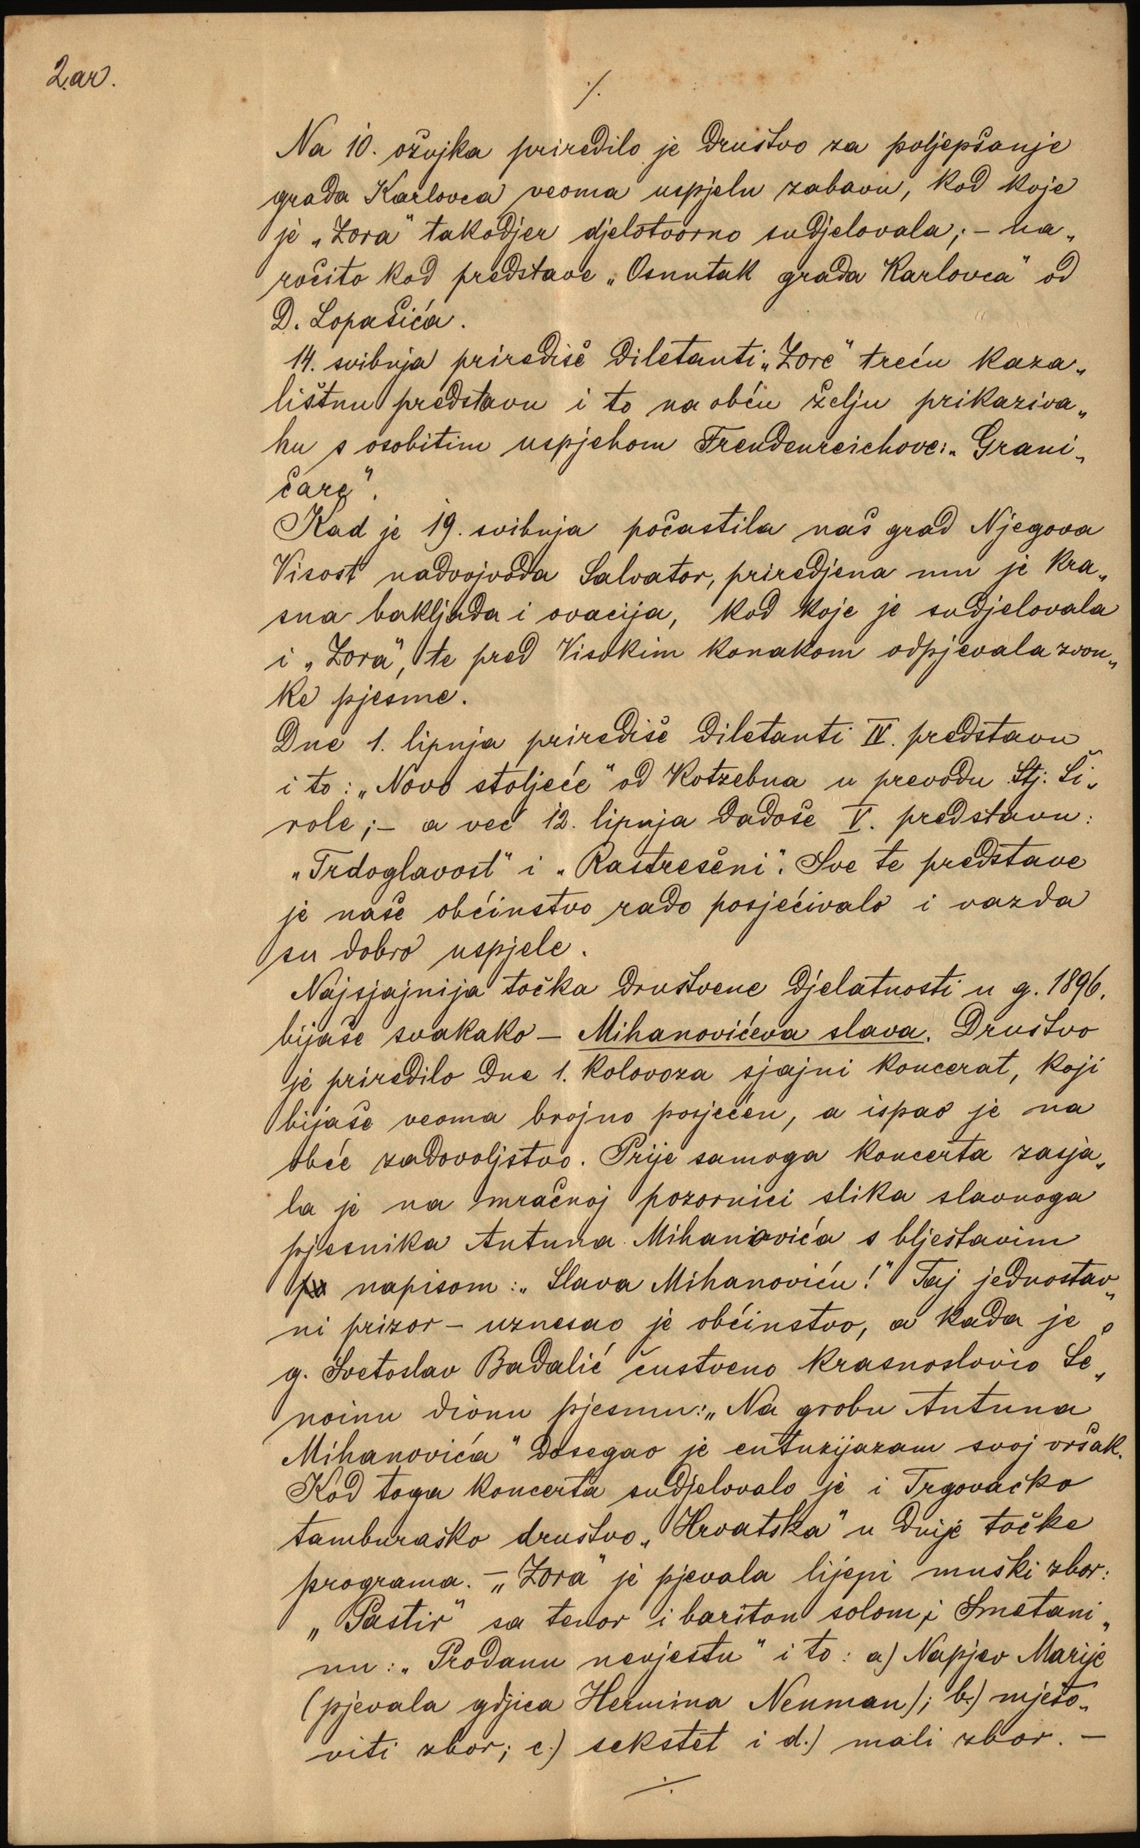 2. ar.
./.
Na 10. ožujka priredilo je društvo za poljepšanje
grada Karlovca veoma uspjelu zabavu, kod koje
je „Zora" takodjer djelotvorno sudjelovala; – na„
ročito kod predstave „Osnutak grada Karlovca" od
D. Lopašića.
14. svibnja prirediše diletanti „Zore" treću kaza„
lištnu predstavu i to na obću želju prikaziva„
hu s osobitim uspjehom Freudenreichove: „Grani„
čare".
Kad je 19. svibnja počastila naš grad Njegova
Visost nadvojvoda Salvator, priredjena mu je kra„
sna bakljada i ovacija, kod koje je sudjelovala
i „Zora", te pred Visokim konakom odpjevala zvon„
ke pjesme.
Dne 1. lipnja prirediše diletanti IV. predstavu
i to: „Novo stoljeće" od Kotzebua u prevodu Stj. Ši„
role; – a već 12. lipnja dadoše V. predstavu:
„Trdoglavost" i „Rastrešeni". Sve te predstave
je naše občinstvo rado posjećivalo i vazda
su dobro uspjele.
Najsjajnija točka društvene djelatnosti u g. 1896.
bijaše svakako – Mihanovićeva slava. Društvo
je priredilo dne 1. kolovoza sjajni koncerat, koji
bijaše veoma brojno posjećen, a ispao je na
obće zadovoljstvo. Prije samoga koncerta zasja„
la je na mračnoj pozornici slika slavnoga
pjesnika Antuna Mihanovića s blještavim
napisom: „Slava Mihanoviću!" Taj jednostav„
ni prizor – uznesao je občinstvo, a kada je
g. Svetoslav Badalić čustveno krasnoslovio Še„
noinu divnu pjesmu: „Na grobu Antuna
Mihanovića" dosegao je entuzijazam svoj vršak.
Kod toga koncerta sudjelovalo je i Trgovačko
tamburaško društvo „Hrvatska" u dvije točke
programa. – „Zora" je pjevala lijepi muški zbor:
„Pastir" sa tenor i bariton solom; i Smetani„
nu: „Prodanu nevjestu" i to: a) Napjev Marije
(pjevala gdjica Hermina Neuman); b.) mješo„
viti zbor; c.) sekstet i d.) mali zbor. –
./.